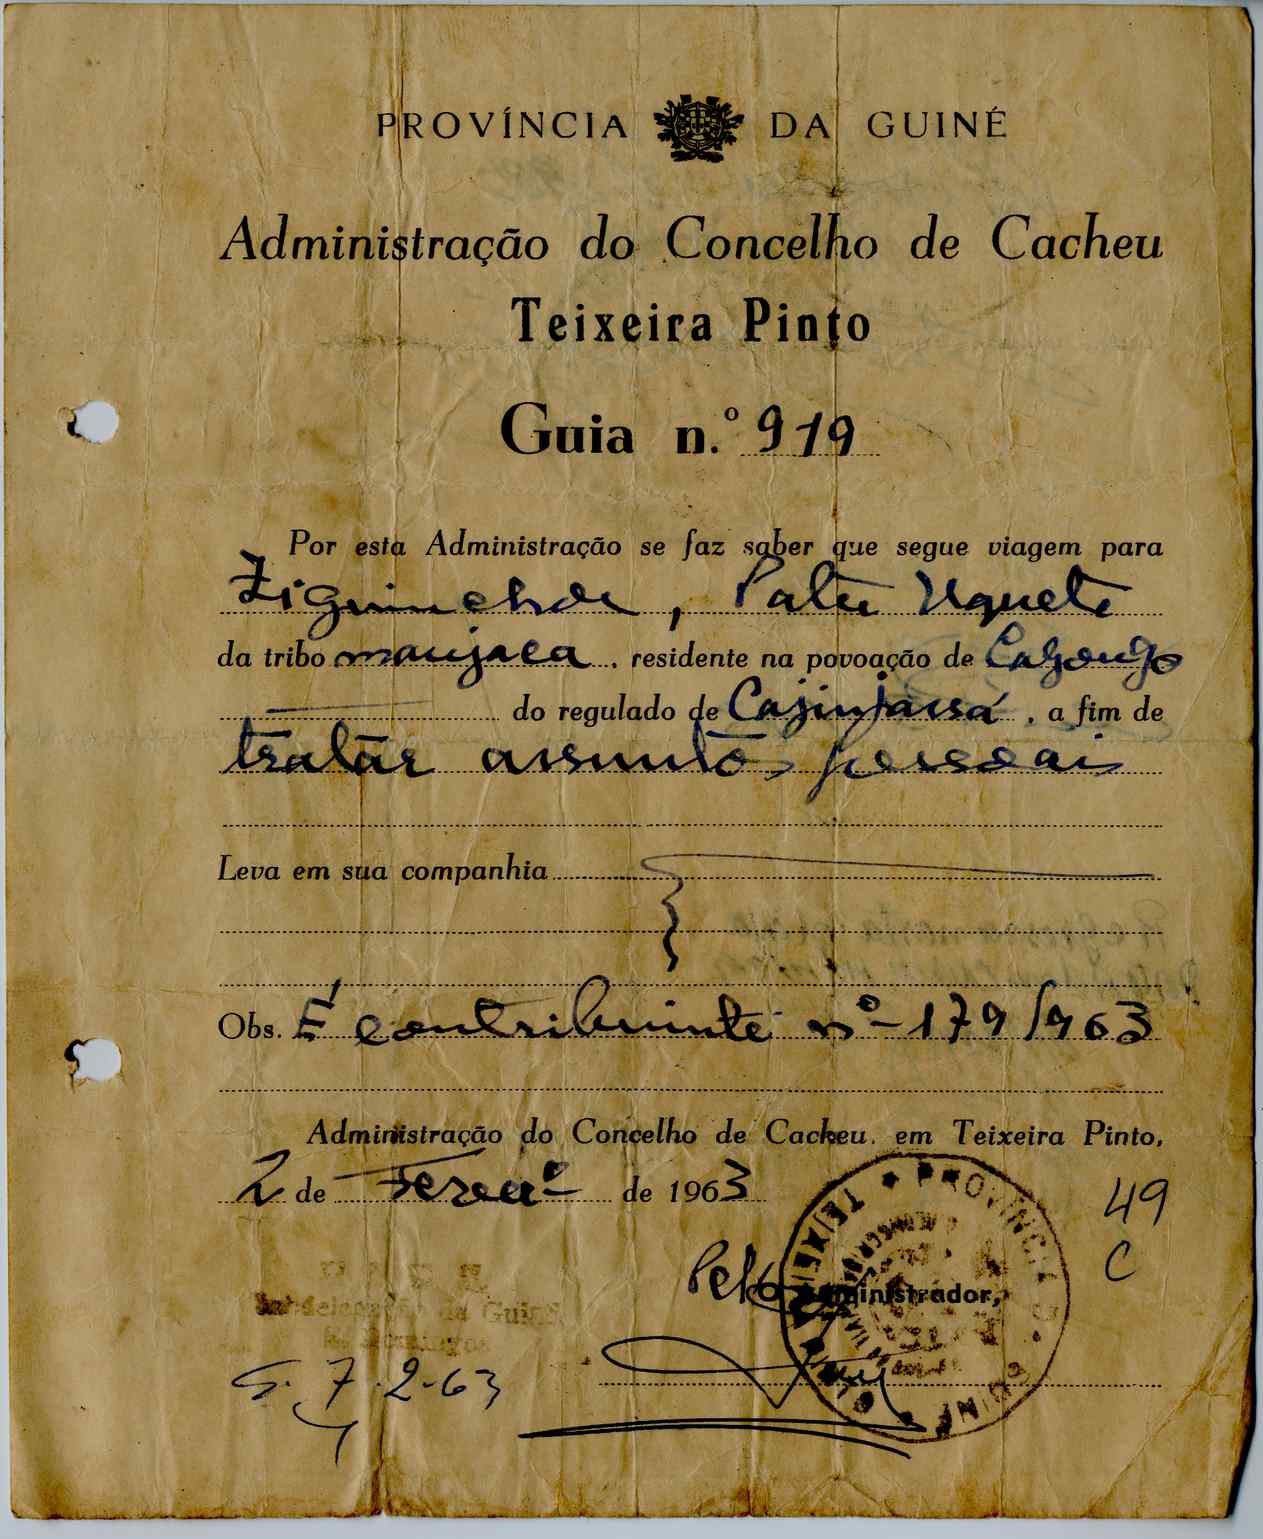 PROVÍNCIA DA GUINÉ
Administração do Concelho de Cacheu
Teixeira Pinto
Guia n.º 919
Por esta Administração se faz saber que segue viagem para
Ziguinchor, Patu Uquete
da tribo manjaca, residente na povoação de
do regulado de Cajinjassá, a fim de
tratar assuntos pessoais
Leva em sua companhia
Obs. É contribuinte nº-179/963
Administração do Concelho de Cacheu, em Teixeira Pinto,
2 de Fevº de 1963
49
C
Pelo Administrador,
PROVÍNCIA DA GUINÉ
TEIXEIRA PINTO
Subdelegação da Guiné
S. Domingos
S. 7-2-63